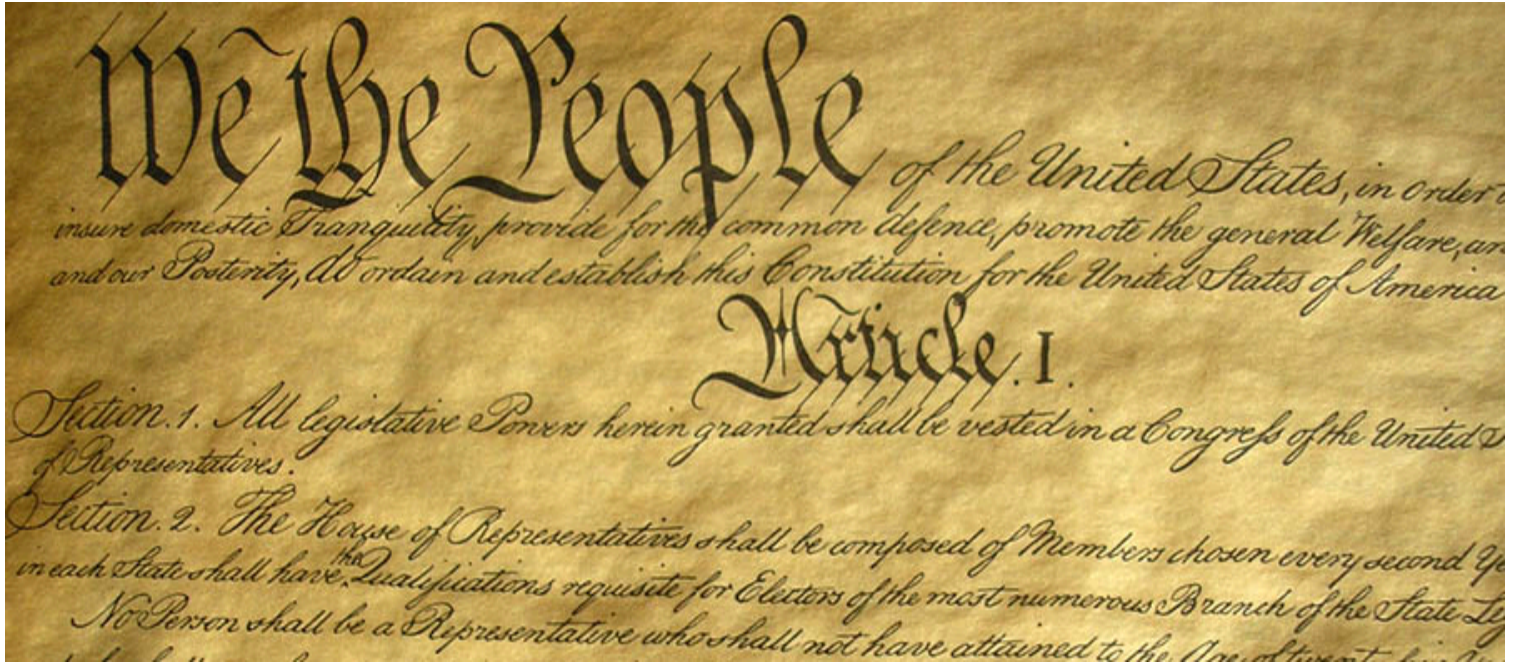 We the People of the United States, in order
insure domestic Tranquility, provide for the common defence, promote the general Welfare, an
and our Posterity, do ordain and establish this Constitution for the United States of America
Article. I.
Section. 1. All legislative Powers herein granted shall be vested in a Congreſs of the United S
of Representatives.
Section. 2. The House of Representatives shall be composed of Members chosen every second Ye
the
in each State shall have Qualifications requisite for Electors of the most numerous Branch of the State Leg
No Person shall be a Representative who shall not have attained to the Age of